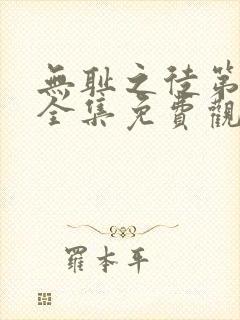 無耻之徒第
全集免費觀
羅本平